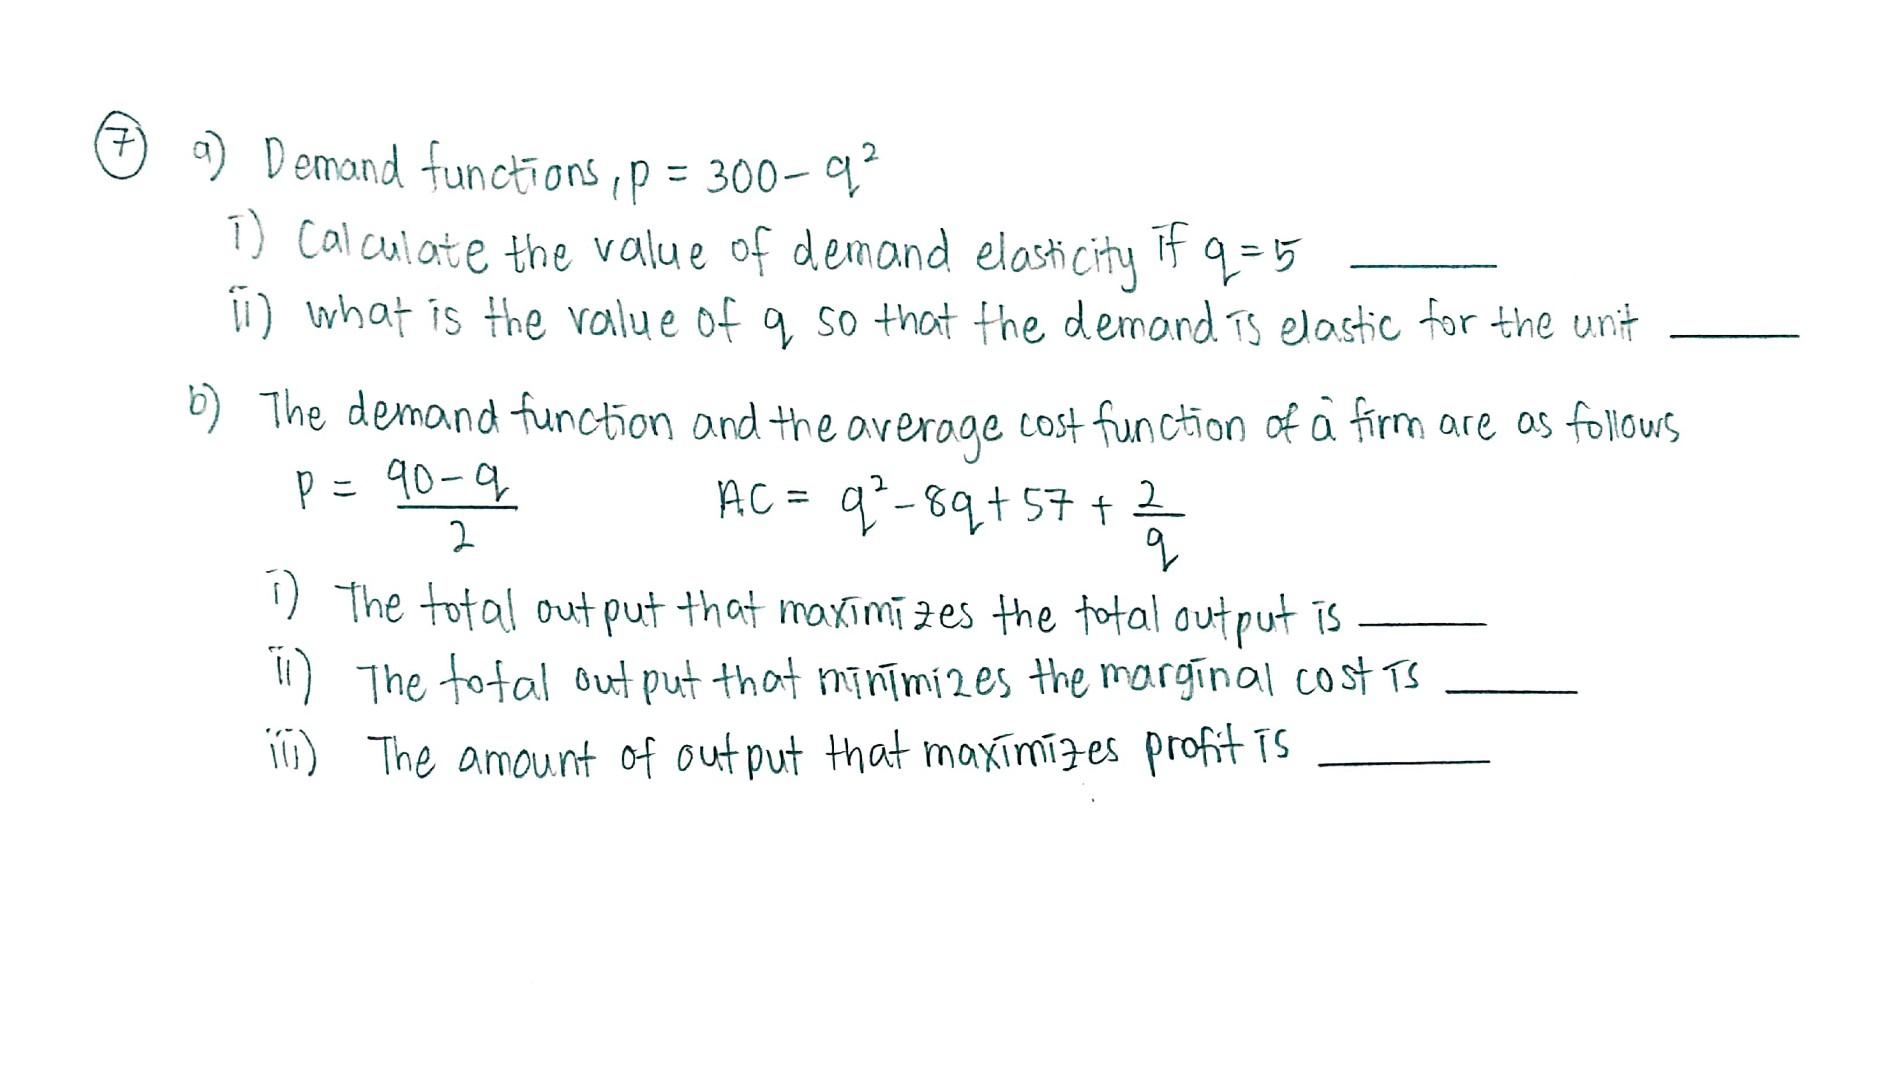 7 a) Demand functions, p = 300 - q²
i) Calculate the value of demand elasticity if q = 5 ____
ii) what is the value of q so that the demand is elastic for the unit ____
b) The demand function and the average cost function of a firm are as follows
p = (90 - q)/2 AC = q² - 8q + 57 + 2/q
i) The total output that maximizes the total output is ____
ii) The total output that minimizes the marginal cost is ____
iii) The amount of output that maximizes profit is ____